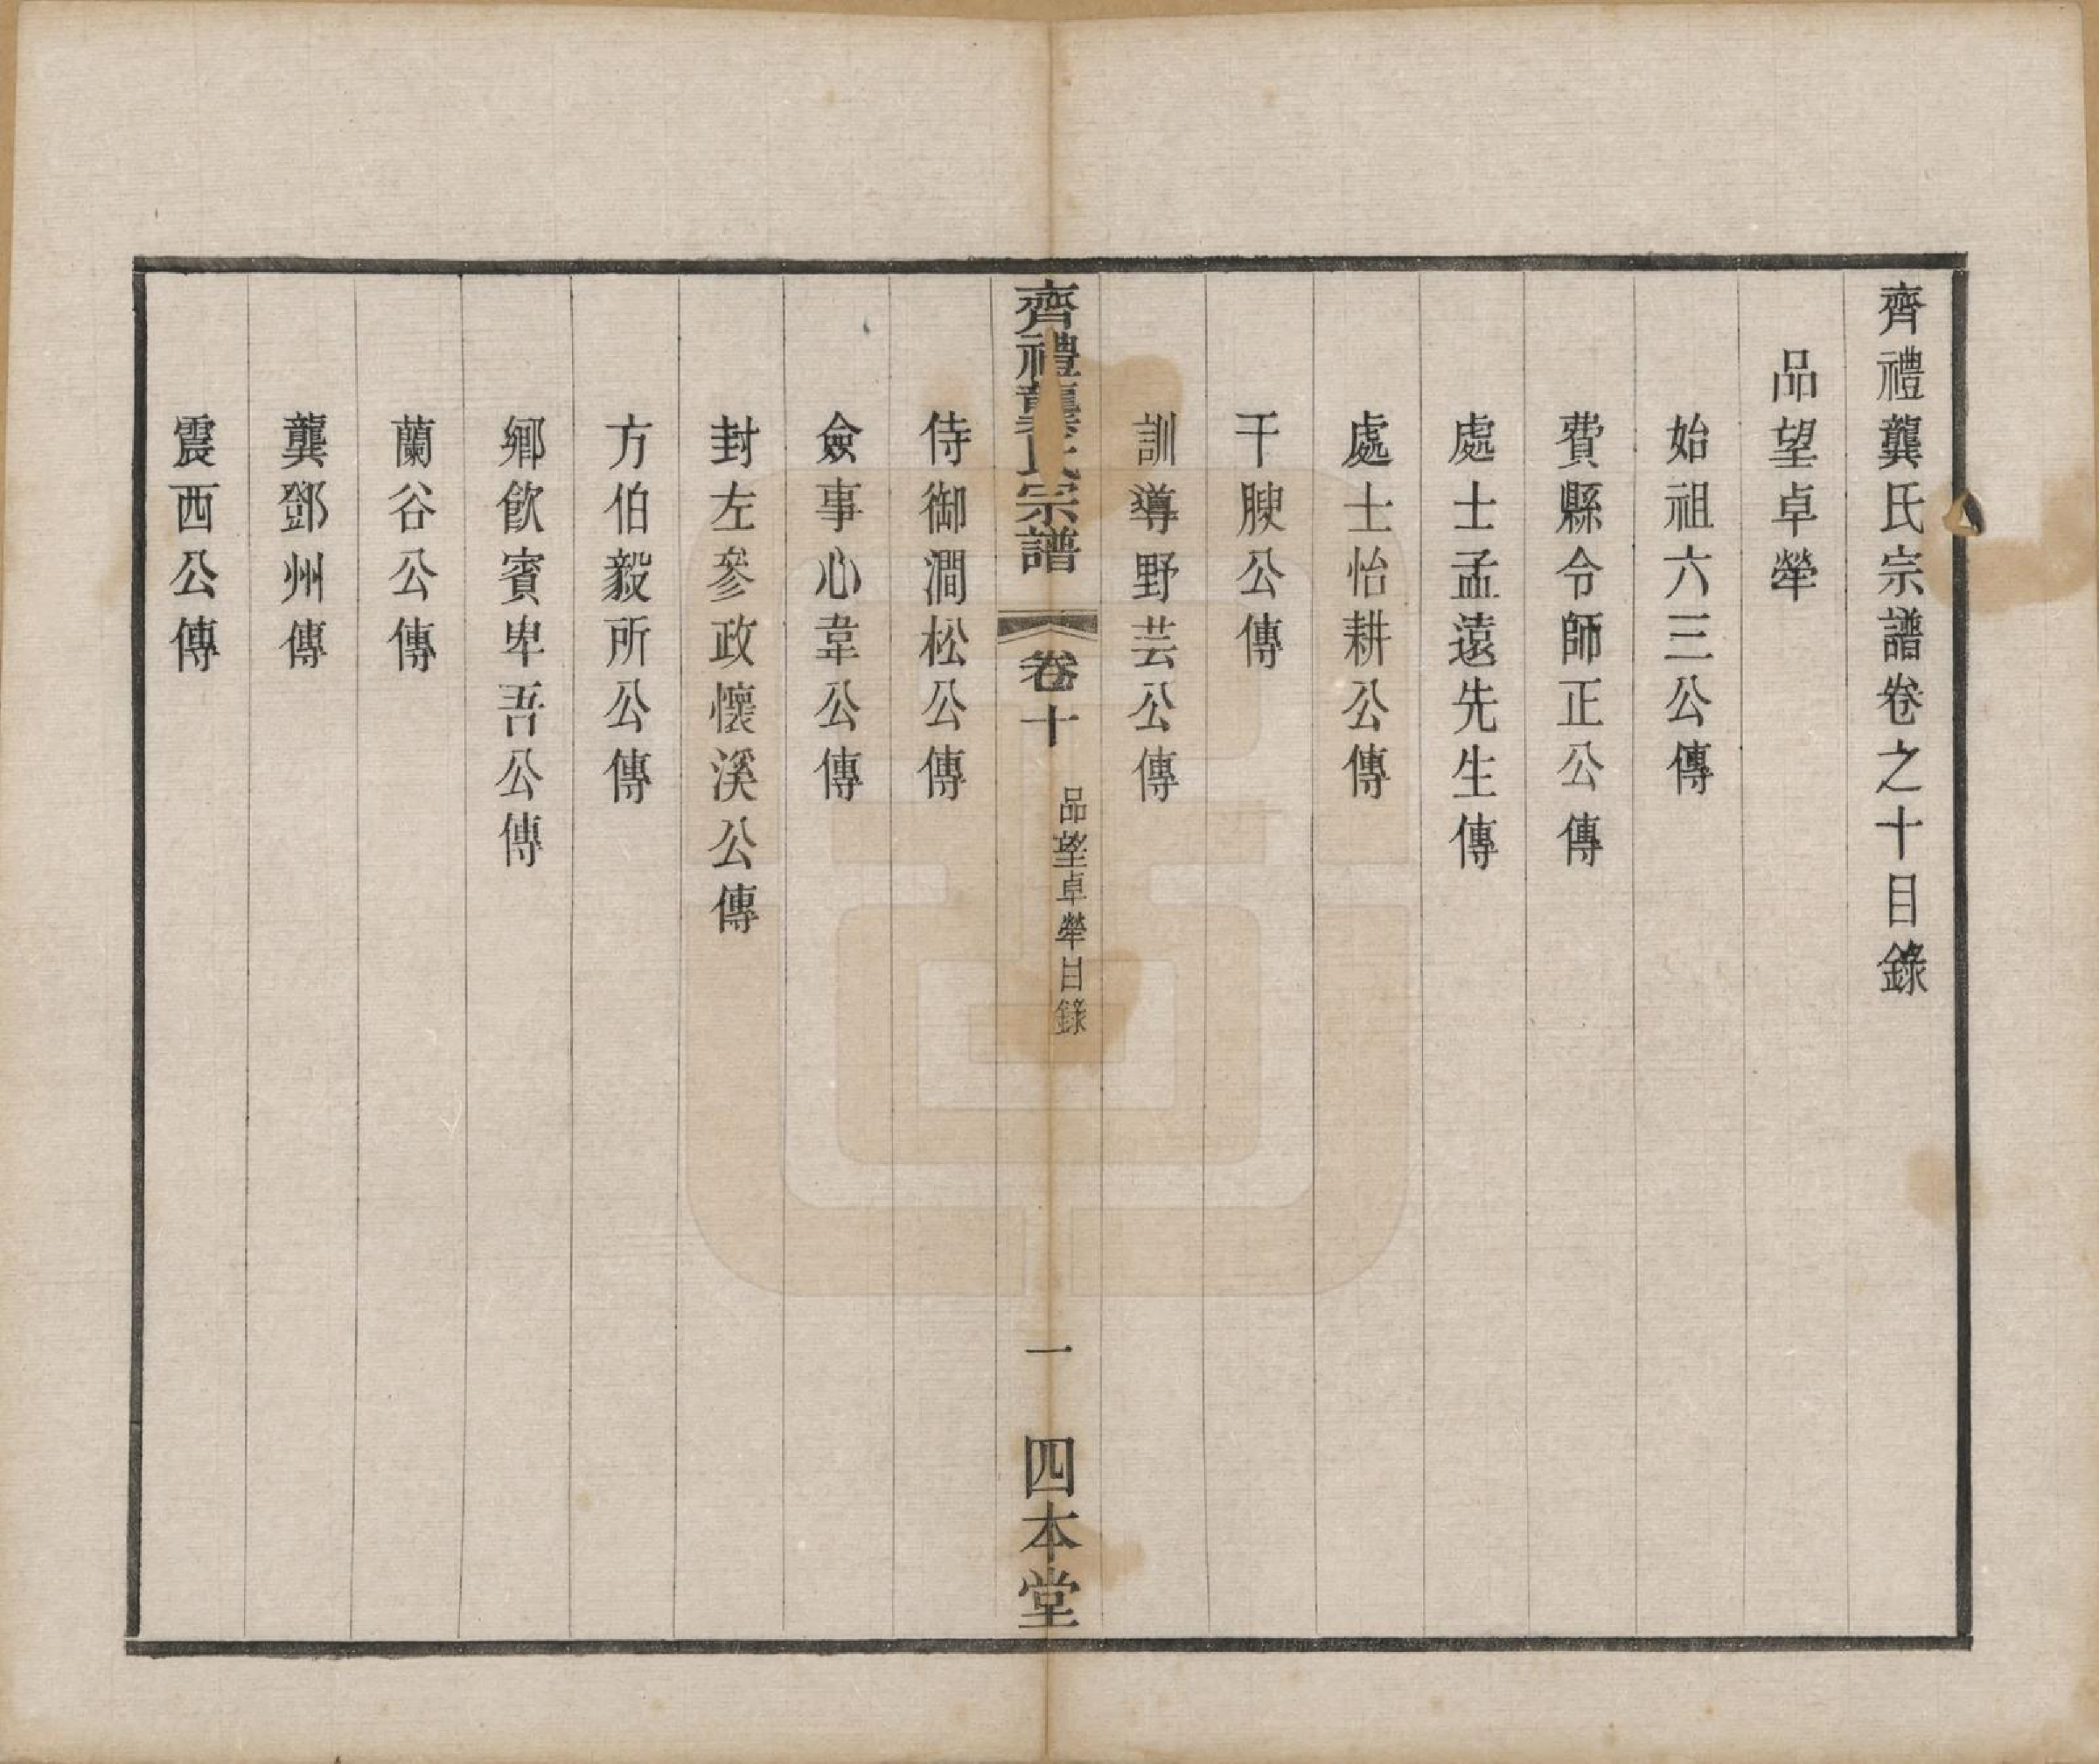 齊禮龔氏宗譜卷之十目錄
品望卓犖
始祖六三公傳
費縣令師正公傳
處士孟遠先生傳
處士怡耕公傳
干腴公傳
訓導野芸公傳
齊禮龔氏宗譜
卷十
品望卓犖目錄
一
四本堂
侍御澗松公傳
僉事心韋公傳
封左參政懷溪公傳
方伯毅所公傳
鄉飲賓卑吾公傳
蘭谷公傳
龔鄧州傳
震西公傳